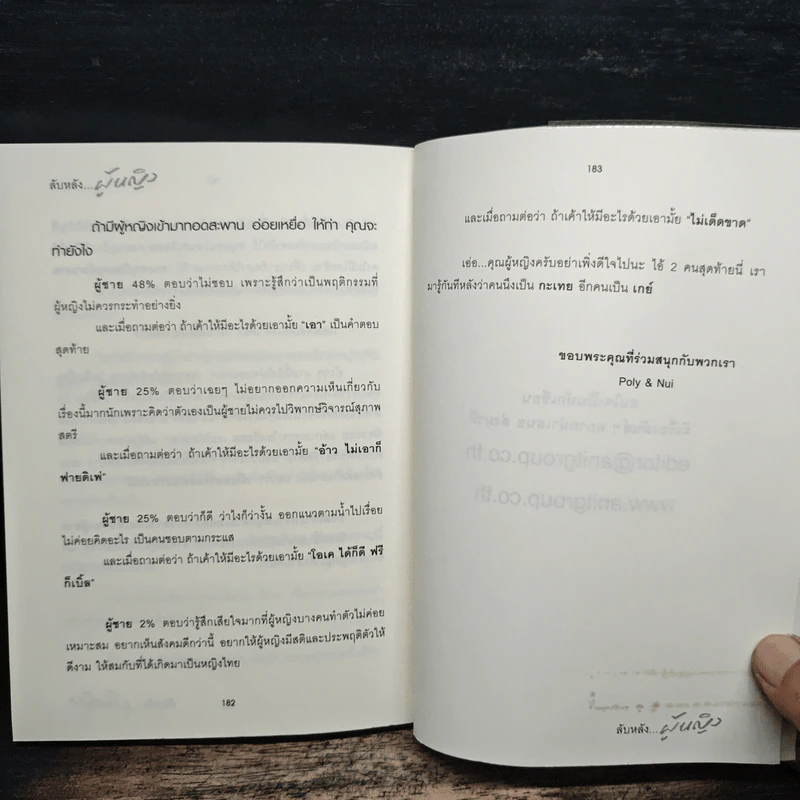 ลับหลัง...ผู้หญิง
ถ้ามีผู้หญิงเข้ามาทอดสะพาน อ่อยเหยื่อ ให้ท่า คุณจะ
ทำยังไง
ผู้ชาย 48% ตอบว่าไม่ชอบ เพราะรู้สึกว่าเป็นพฤติกรรมที่
ผู้หญิงไม่ควรกระทำอย่างยิ่ง
และเมื่อถามต่อว่า ถ้าเค้าให้มีอะไรด้วยเอามั้ย "เอา" เป็นคำตอบ
สุดท้าย
ผู้ชาย 25% ตอบว่าเฉยๆ ไม่อยากออกความเห็นเกี่ยวกับ
เรื่องนี้มากนักเพราะคิดว่าตัวเองเป็นผู้ชายไม่ควรไปวิพากษ์วิจารณ์สุภาพ
สตรี
และเมื่อถามต่อว่า ถ้าเค้าให้มีอะไรด้วยเอามั้ย "อ้าว ไม่เอาก็
ฟายดิเพ่"
ผู้ชาย 25% ตอบว่าก็ดี ว่าไงก็ว่างั้น ออกแนวตามน้ำไปเรื่อย
ไม่ค่อยคิดอะไร เป็นคนชอบตามกระแส
และเมื่อถามต่อว่า ถ้าเค้าให้มีอะไรด้วยเอามั้ย "โอเค ได้ก็ดี ฟรี
ก็เบิ้ล"
ผู้ชาย 2% ตอบว่ารู้สึกเสียใจมากที่ผู้หญิงบางคนทำตัวไม่ค่อย
เหมาะสม อยากเห็นสังคมดีกว่านี้ อยากให้ผู้หญิงมีสติและประพฤติตัวให้
ดีงาม ให้สมกับที่ได้เกิดมาเป็นหญิงไทย
182
183
และเมื่อถามต่อว่า ถ้าเค้าให้มีอะไรด้วยเอามั้ย "ไม่เด็ดขาด"
เอ่อ...คุณผู้หญิงครับอย่าเพิ่งดีใจไปนะ ไอ้ 2 คนสุดท้ายนี่ เรา
มารู้กันทีหลังว่าคนนึงเป็น กะเทย อีกคนเป็น เกย์
ขอบพระคุณที่ร่วมสนุกกับพวกเรา
Poly & Nui
ลับหลัง...ผู้หญิง